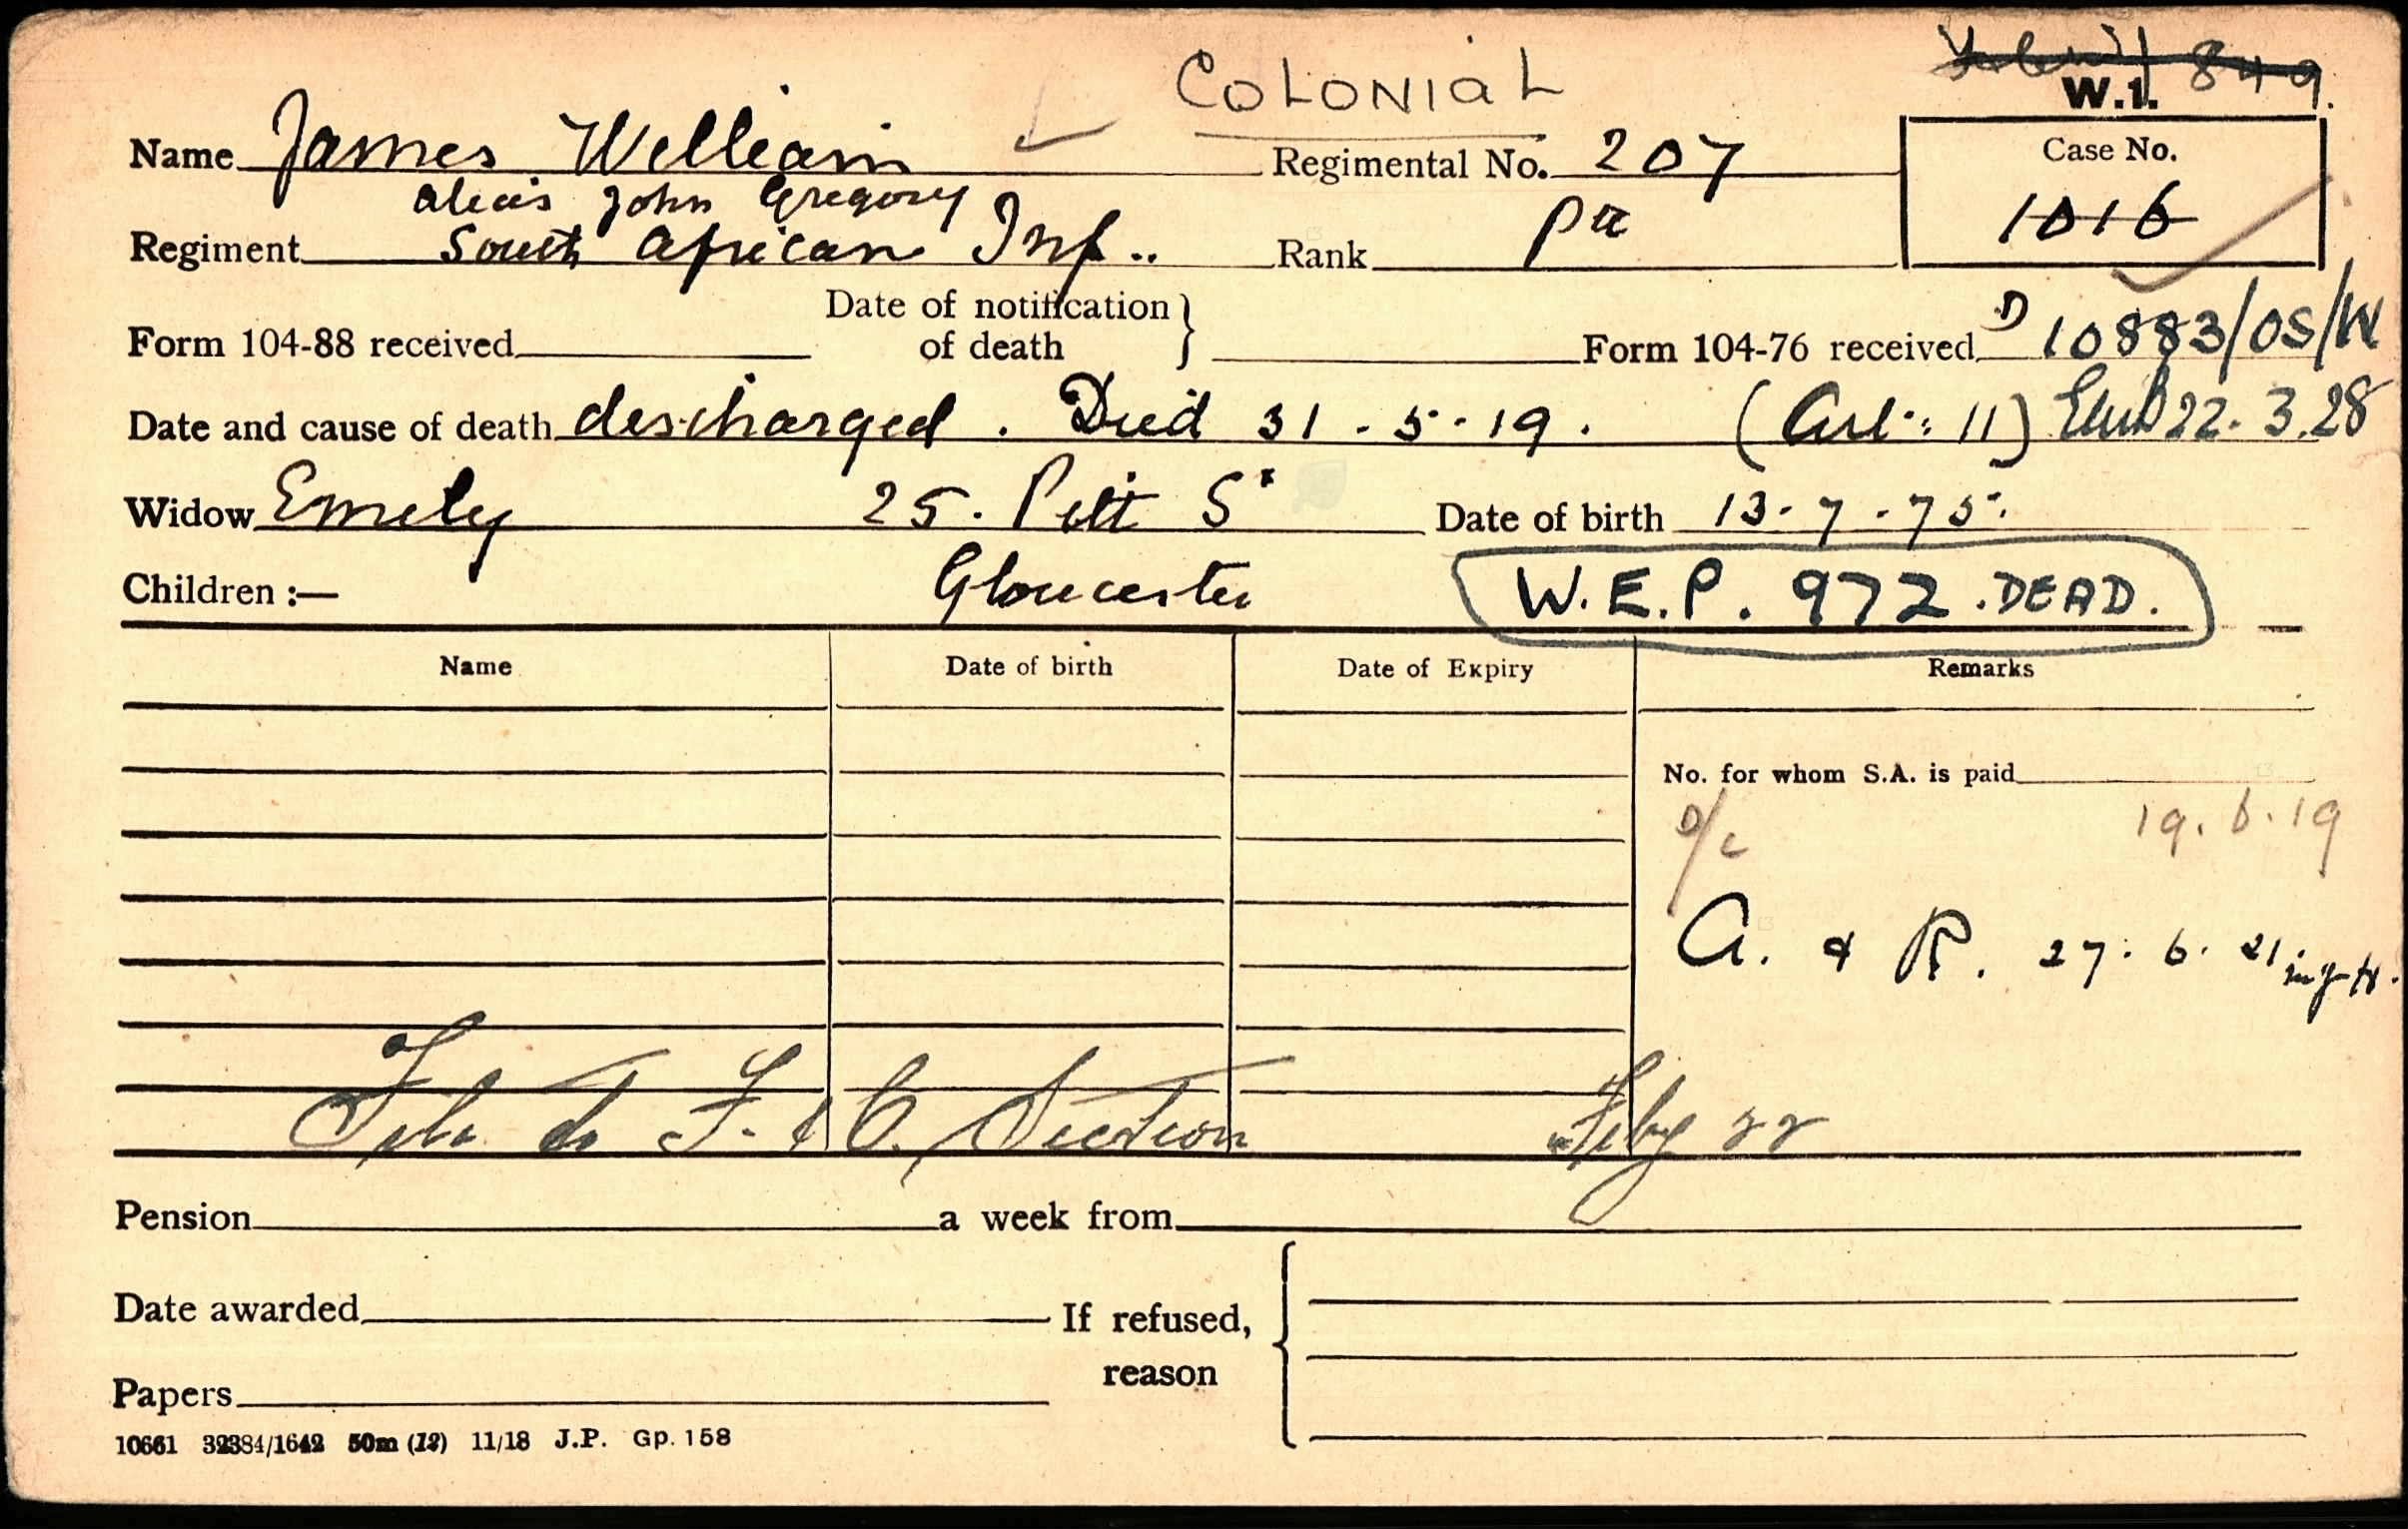 COLONIAL
849.
W.1.
Name James William Regimental No. 207 Case No.
alias John Gregory
1016
Regiment South African Inf.. Rank Pte
Form 104-88 received Date of notification of death Form 104-76 received D 10883/OS/W
Date and cause of death discharged. Died 31.5.19. (Art: 11) 22.3.28
Widow Emily 25. Pitt St Date of birth 13.7.75.
Children :— Gloucester W.E.P. 972. DEAD.
Name Date of birth Date of Expiry Remarks
No. for whom S.A. is paid
D/C 19.6.19
A. & R. 27.6.21
File to F. & C. Section Feby 22
Pension a week from
Date awarded If refused,
reason
Papers
10661 32384/1642 50m (12) 11/18 J.P. Gp. 158